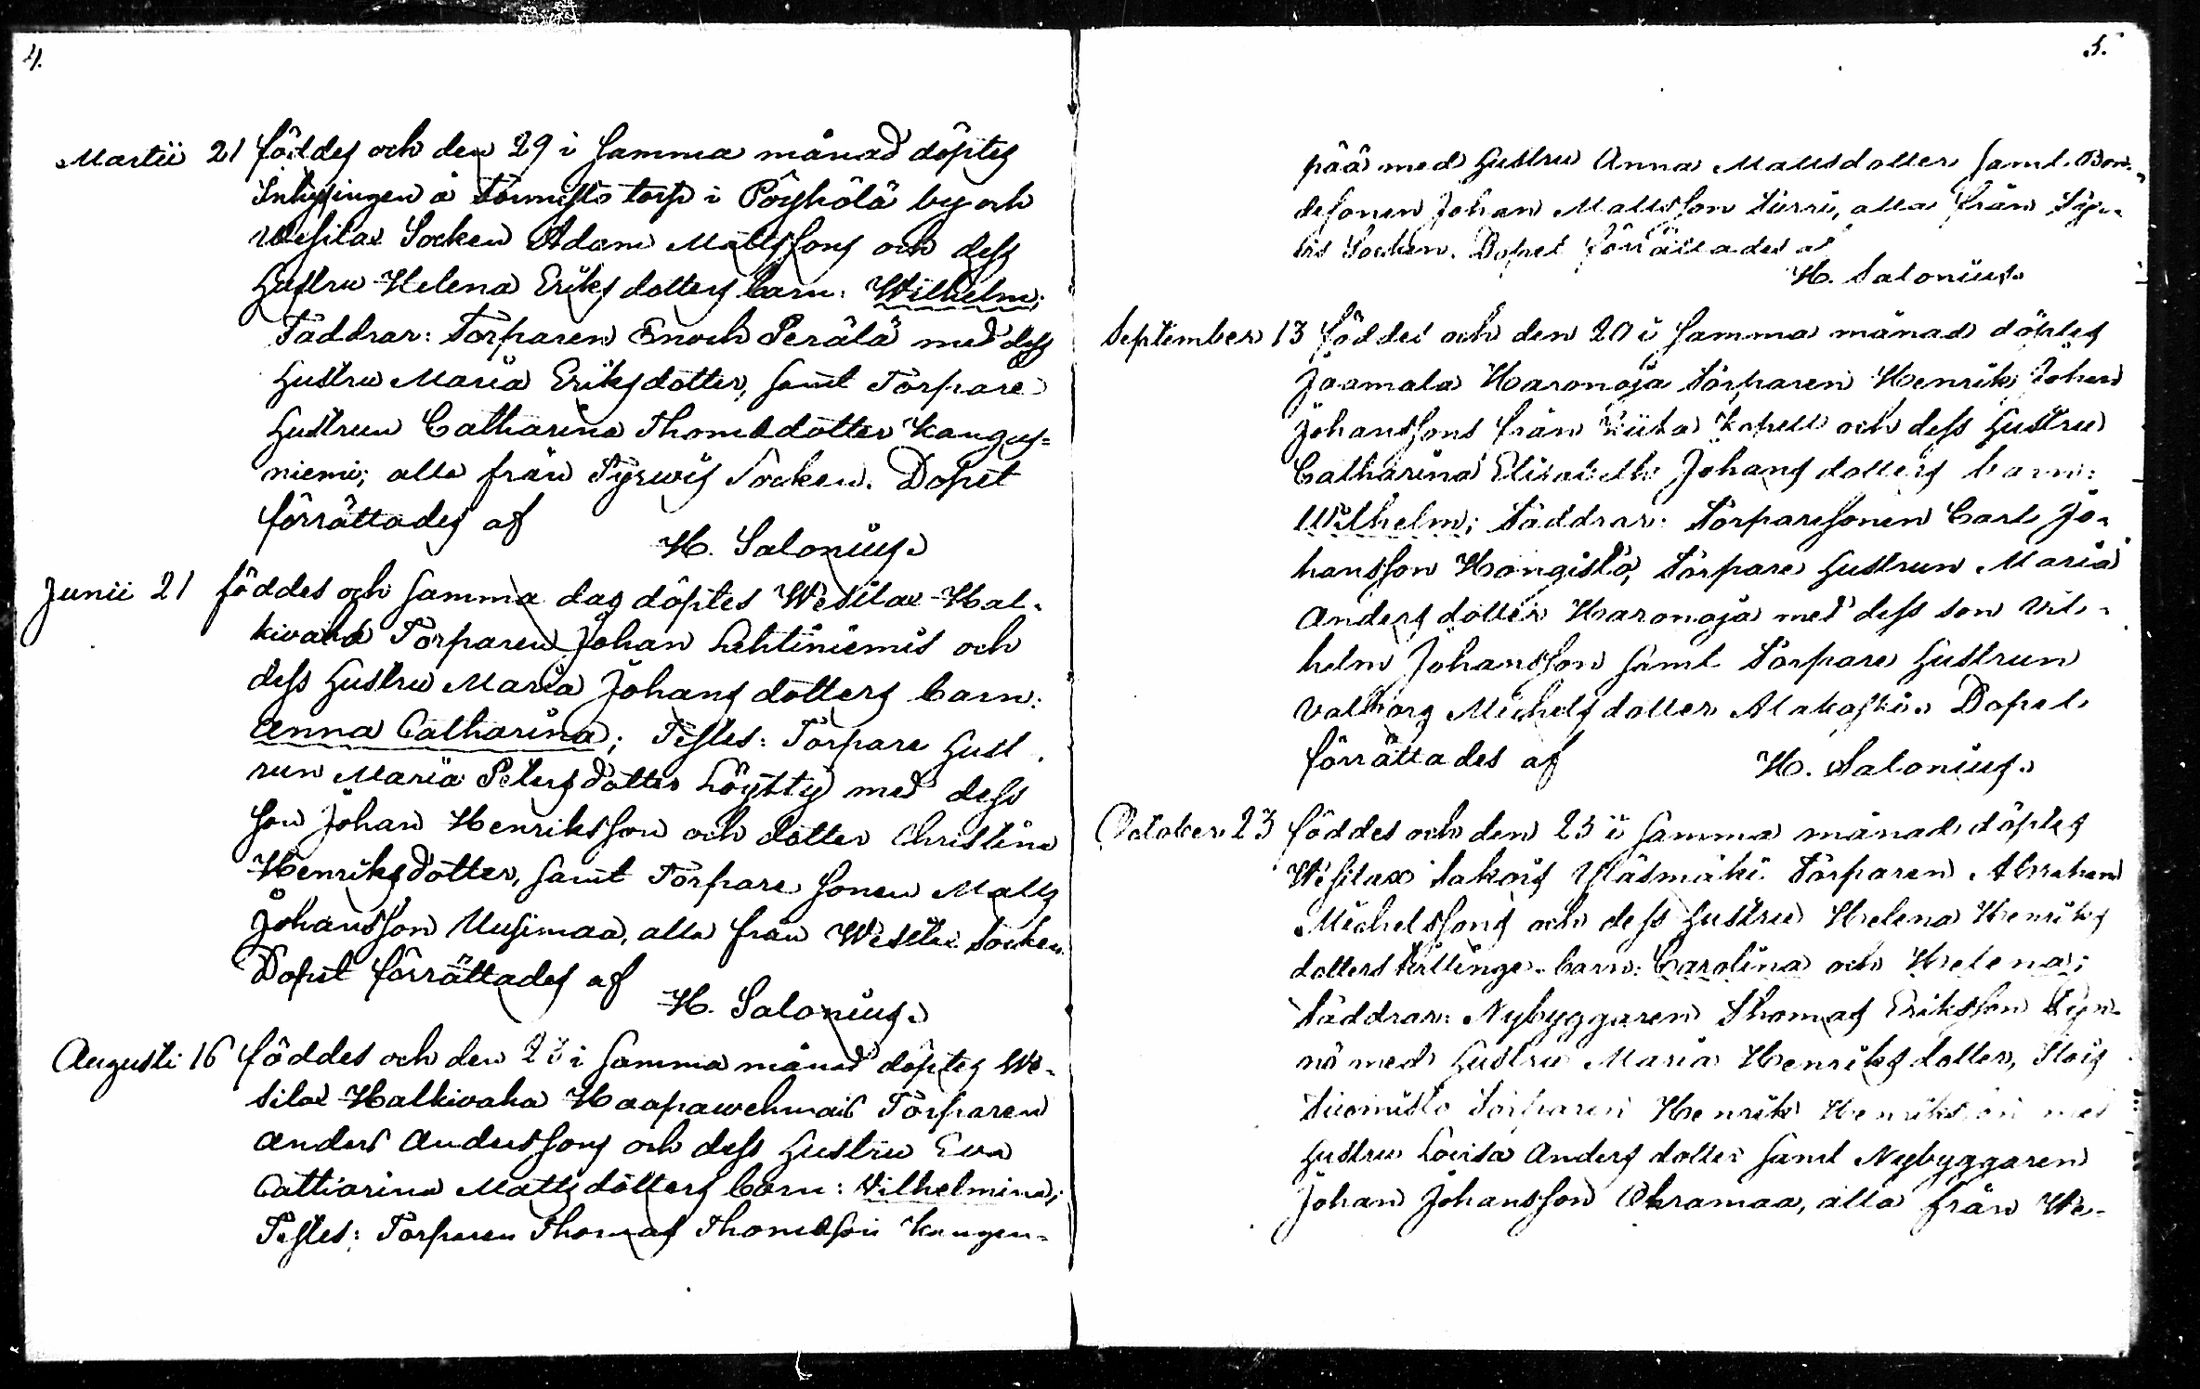 4.
Martii 21 föddes och den 29 i samma månad döptes
Inhysingen å Tornisto torp i Pöyhölä by och
Wesilax Socken Adam Mattssons och dess
hustru Helena Eriksdotters barn: Wilhelm;
Faddrar: Torparen Enoch Perälä med dess
hustru Maria Eriksdotter, samt Torpare
hustrun Catharina Thomædotter Kangas=
niemi; alla från Tyrwis Socken. Dopet
förrättades af
H. Salonius.
Junii 21 föddes och samma dag döptes Wesilax Hal-
kivaha Torparen Johan Lehtiniemis och
dess hustru Maria Johans dotters barn:
Anna Catharina; Testes: Torpare hust
run Maria Petersdotter Löyhty med dess
son Johan Henriksson och dotter Christina
Henriksdotter, samt Torpare sonen Matts
Johansson Uusimaa, alla från Wesilax Socken.
Dopet förrättades af
H. Salonius.
Augusti 16 föddes och den 23 i samma månad döptes We-
silax Halkivaha Haapawehmais Torparen
Anders Anderssons och dess hustru Eva
Catharina Mattsdotters barn: Vilhelmina;
Testes: Torparen Thomas Thomæson Kangen-
5.
pää med hustru Anna Mattsdotter samt Bon-
desonen Johan Mattsson Surri, alla från Tyr-
vis Socken. Dopet förrättades af
H. Salonius.
September 13 föddes och den 20 i samma månad döptes
Jaamala Haronoja Torparen Henrik Johan
Johanssons från Kiika Kapell och dess hustru
Catharina Elisabeth Johans dotters barn:
Wilhelm; Faddrar: Torparesonen Carl Jo-
hansson Hongisto, Torpare hustrun Maria
Anders dotter Haronoja med dess son Vil-
helm Johansson samt Torpare hustrun
Valborg Michels dotter Alakoski. Dopet
förrättades af
H. Salonius.
October 23 föddes och den 25 i samma månad döptes
Wesilax Sakois Ylåsmäki Torparen Abraham
Michelssons och dess hustru Helena Henriks
dotters tvillinge-barn: Carolina och Helena;
Faddrar: Nybyggaren Thomas Eriksson Kyn-
nö med hustru Maria Henriks dotter,
Tuomisto Torparen Henrik Henriksson med
hustru Lovisa Anders dotter samt Nybyggaren
Johan Johansson Ohramaa, alla från We-